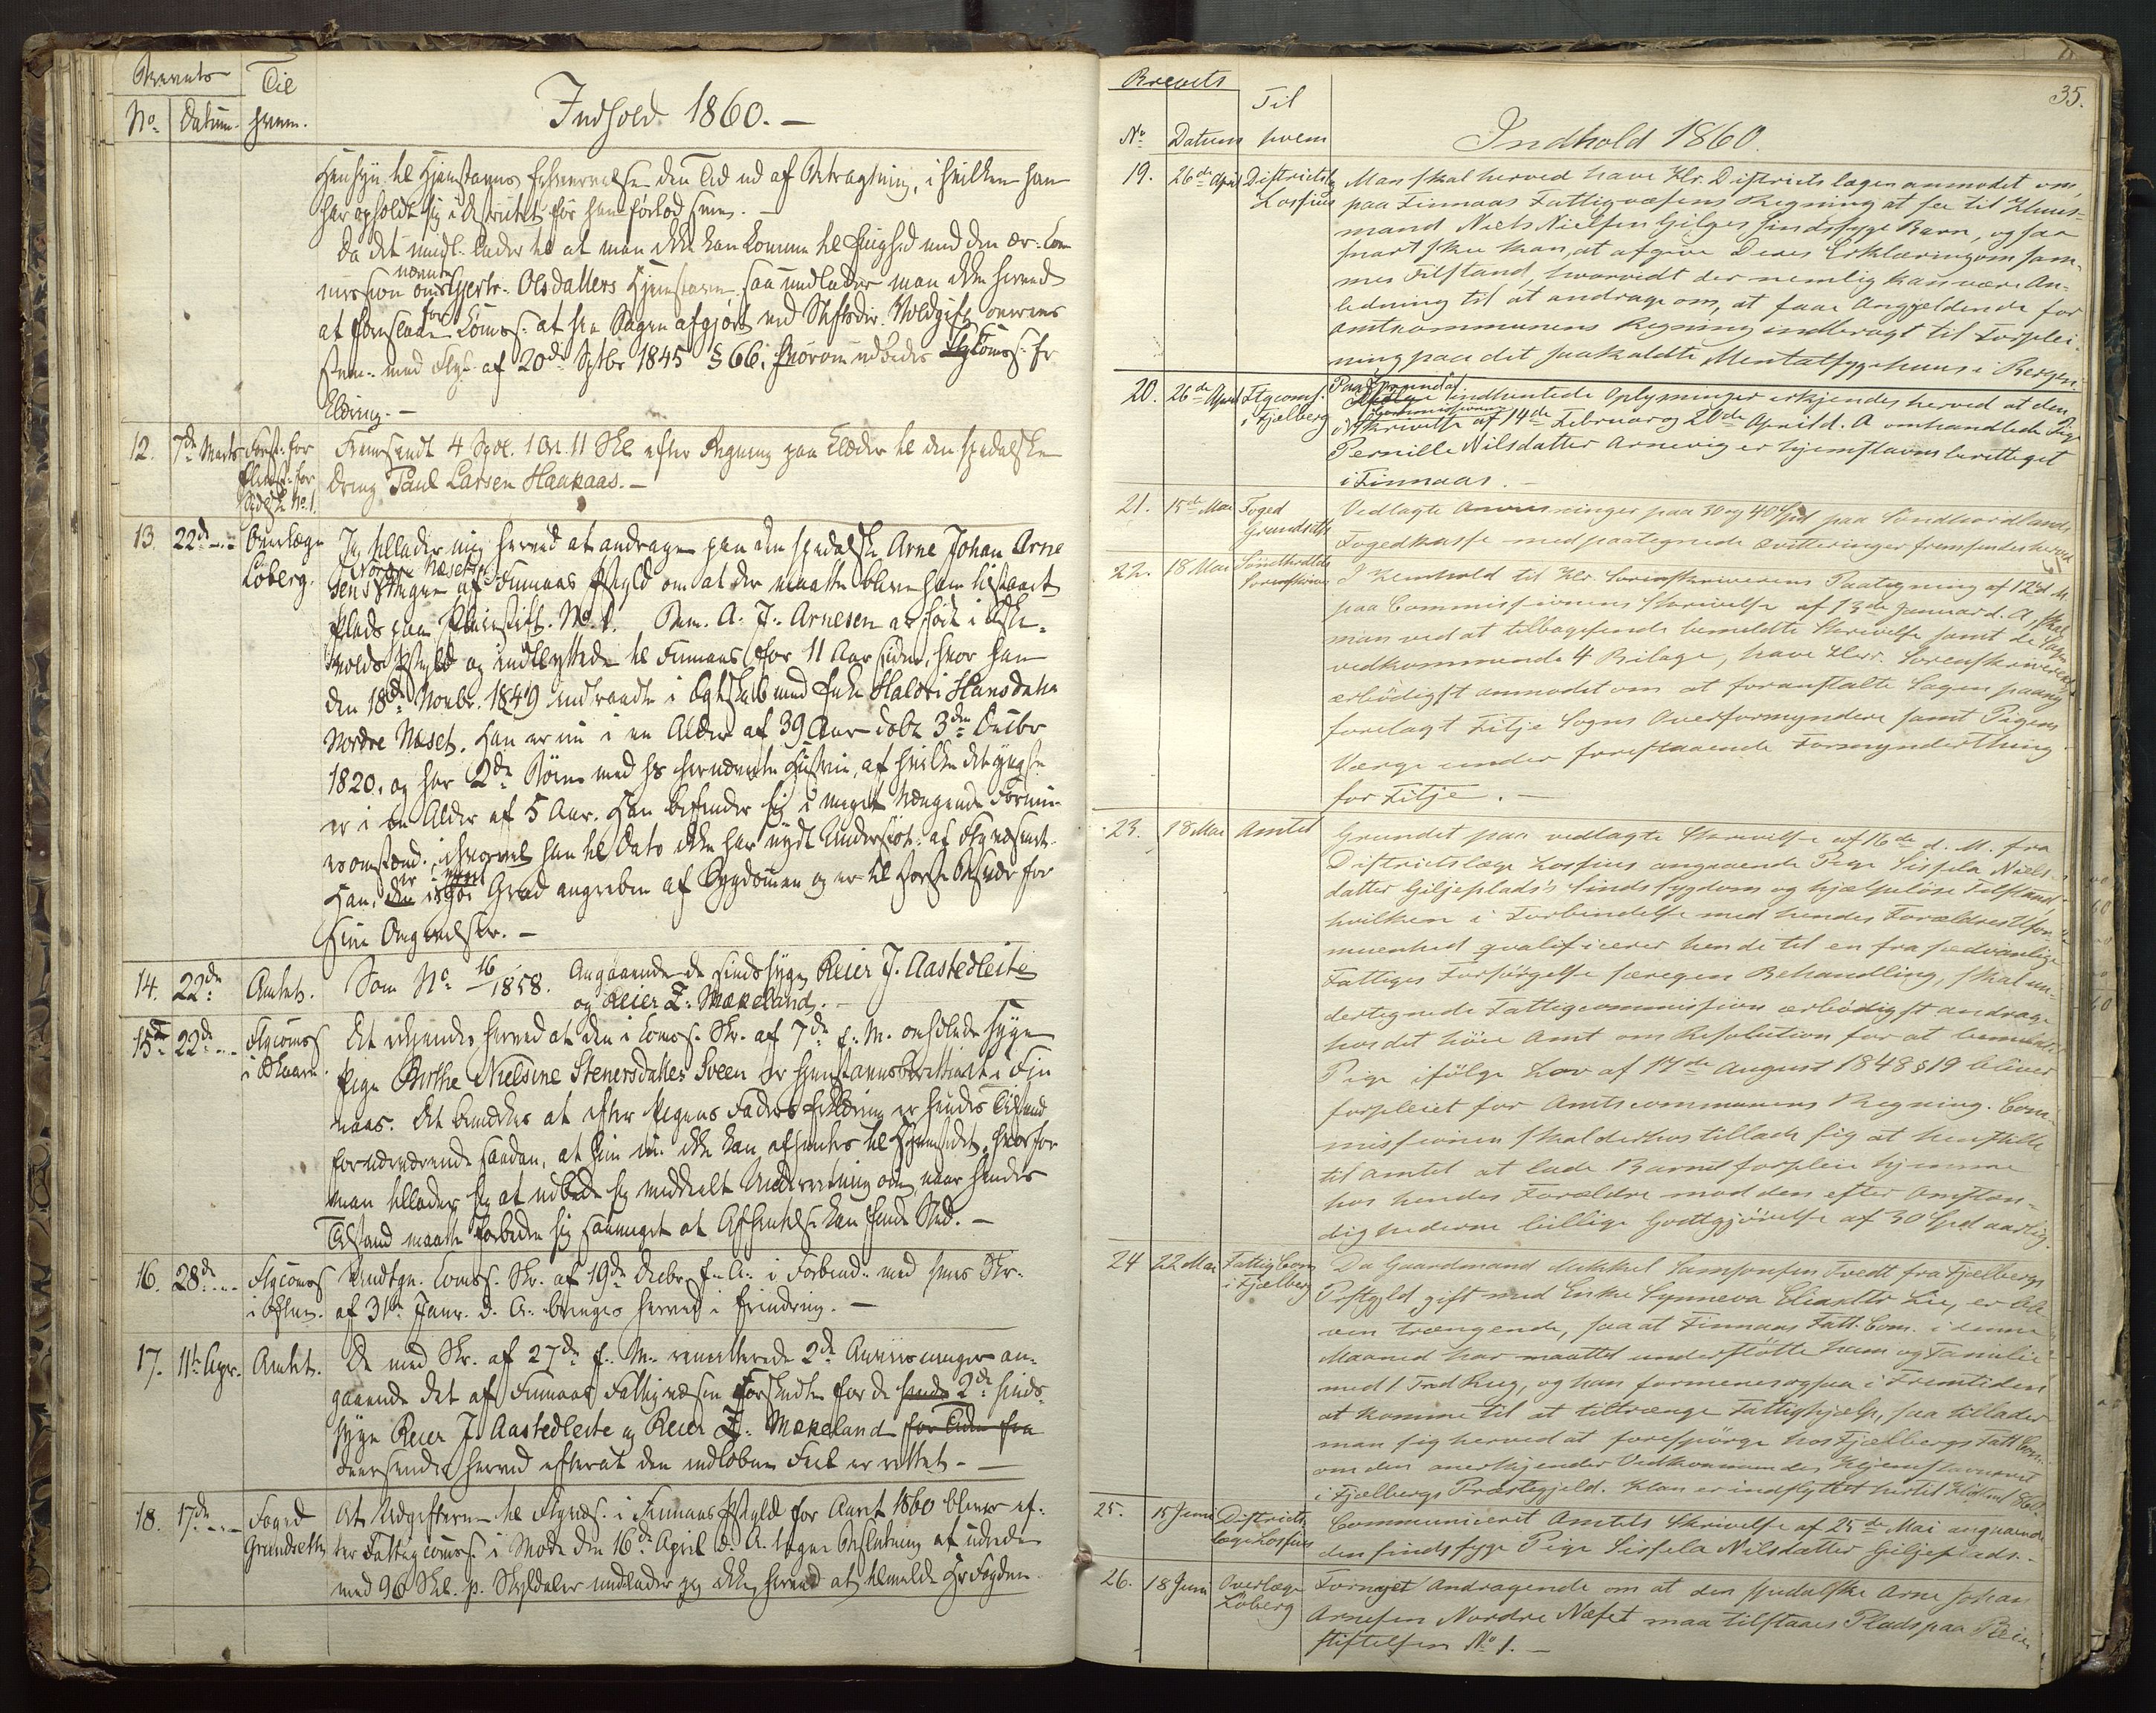 Brevets
Til
No. Datum. hvem.
Indhold 1860. —
Hensyn til Hjemstavns Erhvervelse den Tid ud af Betragtning, i hvilken han
har opholdt sig i Distriktet før han forlod samme. —
Da det midl. lader til at man ikke kan komme til Enighed med den ær. Com
mission om nævnte Gjertr. Olsdatters Hjemstavn, saa undlader man ikke herved
at foreslaae for Commss. at faa Sagen afgjort ved Stiftsdir. Voldgift overens
stem. med Lov af 20de Septbr 1845 § 66, hvorom udbedes Commss. Er
klæring. —
12. 7de Marts Forst. for Pleiest. for Spedalsk No. 1. Fremsendt 4 Spd. 1 Ort 11 Skl efter Regning paa Klæder til den spedalske
Dreng Paul Larsen Haakaas. —
13. 22de — Overlæge Løberg. Jeg tillader mig herved at andrage paa den spedalske Arne Johan Arne
sens Nordre Næset af Finnaas Pstgjld om at der maatte blive ham tilstaaet
Plads paa Pleiestift. No. 1. Bem. A. J. Arnesen er født i
Pstgjld og indflyttede til Finnaas for 11 Aar siden, hvor han
den 18de Novbr. 1849 indtraadte i Egteskab med Enke Haldri Hansdatter
Nordre Næset. Han er nu i en Alder af 39 Aar døbt 3de Decbr
1820, og har 2de Børn med hs hernævnte Hustru, af hvilke det yngste
er i en Alder af 5 Aar. Han befinder sig i meget trængende Formu-
esomstænd. ihvorvel han til Dato ikke har nydt Understøt. af Fgvæsenet.
Han er i høi Grad angreben af Sygdommen og er til Besvær for
sine Omgivelser. —
14. 22de Amtet. Som No. 16/1858. Angaaende de sindssyge Reier J. Aastedleite
og Reier Z. Mækeland. —
15de 22de — Fgcomss i Skaanevig. Det erkjendes herved at den i Comss. Skr. af 7de f. M. omhdlede syge
Pige Birthe Nielsine Stenersdatter Sveen er hjemstavnsberettiget i Fin
naas. Det bemærkes at efter Pigens Faders Erklæring er hendes Tilstand
for nærværende saadan, at hun nu ikke kan afhentes til Hjemstedet, hvorfor
man tillader sig at udbede sig meddeelt Underretning om, naar hendes
Tilstand maatte forbedre sig saameget at Afhentelse kan finde Sted. —
16. 28de — Fgcomss i Ølen. Undtgn. Comss. Skr. af 19de Decbr. f. A. i Forbind. med sens Skr.
af 31te Janr. d. A. bringes herved i Erindring. —
17. 11te Apr. Amtet. De med Skr. af 27de f. M. remitterede 2de Anviisninger an-
gaaende det af Finnaas Fattigvæsen Forskudte for de 2de sinds-
syge Reier J. Aastedleite og Reier Z. Mækeland for Tiden fra
tversendes herved efterat den indløbne Feil er rettet. —
18. 17de — Foged Grundseth At Udgifterne til Fgvæs. i Finnaas Pstgjld for Aaret 1860 bliver ef-
ter Fattigcomss. i Møde den 16de April d. A. tagne Beslutning at udrede
med 96 Skl. p. Skylddaler undlader jeg ikke herved at tilmelde Hr Fogden.
35.
Brevets
Til
No Datum hvem
Indhold 1860.
19. 26de April Districtslg Losfius Man skal herved have Hr. Districtslægen anmodet om,
paa Finnaas Fattigvæsens Regning at see til Huus-
mand Niels Nielsen Gilges sindssyge Barn, og saa
snart skee kan, at afgive Deres Erklæring om sam-
mes Tilstand, hvorvidt der nemlig kan være An-
ledning til at andrage om, at faae Angjeldende for
Amtcommunens Regning indbragt til Forplei-
ning paa det saakaldte Mentalsygehuus i Bergen.
20. 26de April Fgcomss. i Fjelberg Paa Grund af indhentede Oplysninger erkjendes herved at den
i Commissionens Skrivelse af 14de Februar og 20de April d. A omhandlede Pige
Pernille Nilsdatter Arnevig er hjemstavnsberettiget
i Finnaas. —
21. 15de Mai Foged Grundseth Vedlagte Anviisninger paa 30 og 40 Spd paa Søndhordlands
Fogedkasse med paategnede Qvitteringer fremsendes herved
22. 18 Mai Søndhordlds Sorenskriver I Henhold til Hr. Sorenskriverens Paategning af 12te d. M.
paa Commissionens Skrivelse af 13de Januar d. A skal
man ved at tilbagesende bemeldte Skrivelse samt de Sagen
vedkommende 4 Bilage, have Herr. Sorenskriveren
ærbødigst anmodet om at foranstalte Sagen paany
forelagt Fitje Sogns Overformyndere samt Pigens
Værge under forestaaende Formynderthing
for Fitje. —
23. 18 Mai Amtet Grundet paa vedlagte Skrivelse af 16de d. M. fra
Districtslæge Losfius angaaende Pige Sissela Niels-
datter Giljeplads's Sindssygdom og hjælpeløse Tilstand,
hvilken i Forbindelse med hendes Forældres Ufor-
muenhed qvalificerer hende til en fra sædvanlige
Fattiges Forsørgelse særegen Behandling, skal un-
dertegnede Fattigcommission ærbødigst andrage
hos det høie Amt om Resolution for at bemeldte
Pige ifølge Lov af 17de August 1848 § 19 bliver
forpleiet for Amtscommunens Regning. Com-
missionen skal derhos tillade sig at henstille
til Amtet at lade Barnet forpleie hjemme
hos hendes Forældre mod den efter Omstæn-
dighederne billige Godtgjørelse af 30 Spd aarlig.
24 22 Mai Fattig Com i Fjælberg Da Gaardmand Mikkel Samsonsen Tvedt fra Fjælbergs
Pstgjld gift med Enke Synneva Eliasdtr Lie, er ble-
ven trængende, saa at Finnaas Fatt. Com. i denne
Maaned har maattet understøtte ham og Familie
med 1 Tnd Rug, og han formenes ogsaa i Fremtiden
at komme til at tiltrænge Fattighjælp, saa tillader
man sig herved at forespørge hos Fjælbergs Fatt Com.
om den anerkjender Vedkommendes Hjemstavnsret
i Fjælbergs Præstegjeld. Han er indflyttet hertil
25. 15 Juni Districts læge Losfius Communiceret Amtets Skrivelse af 25de Mai angaaende
den sindssyge Pige Sissela Nilsdatter Giljeplads. -
26. 18 Juni Overlæge Løberg Fornyet Andragende om at den spedalske Arne Johan
Arnesen Nordre Næset maa tilstaaes Plads paa Pleie
stiftelsen No 1. —